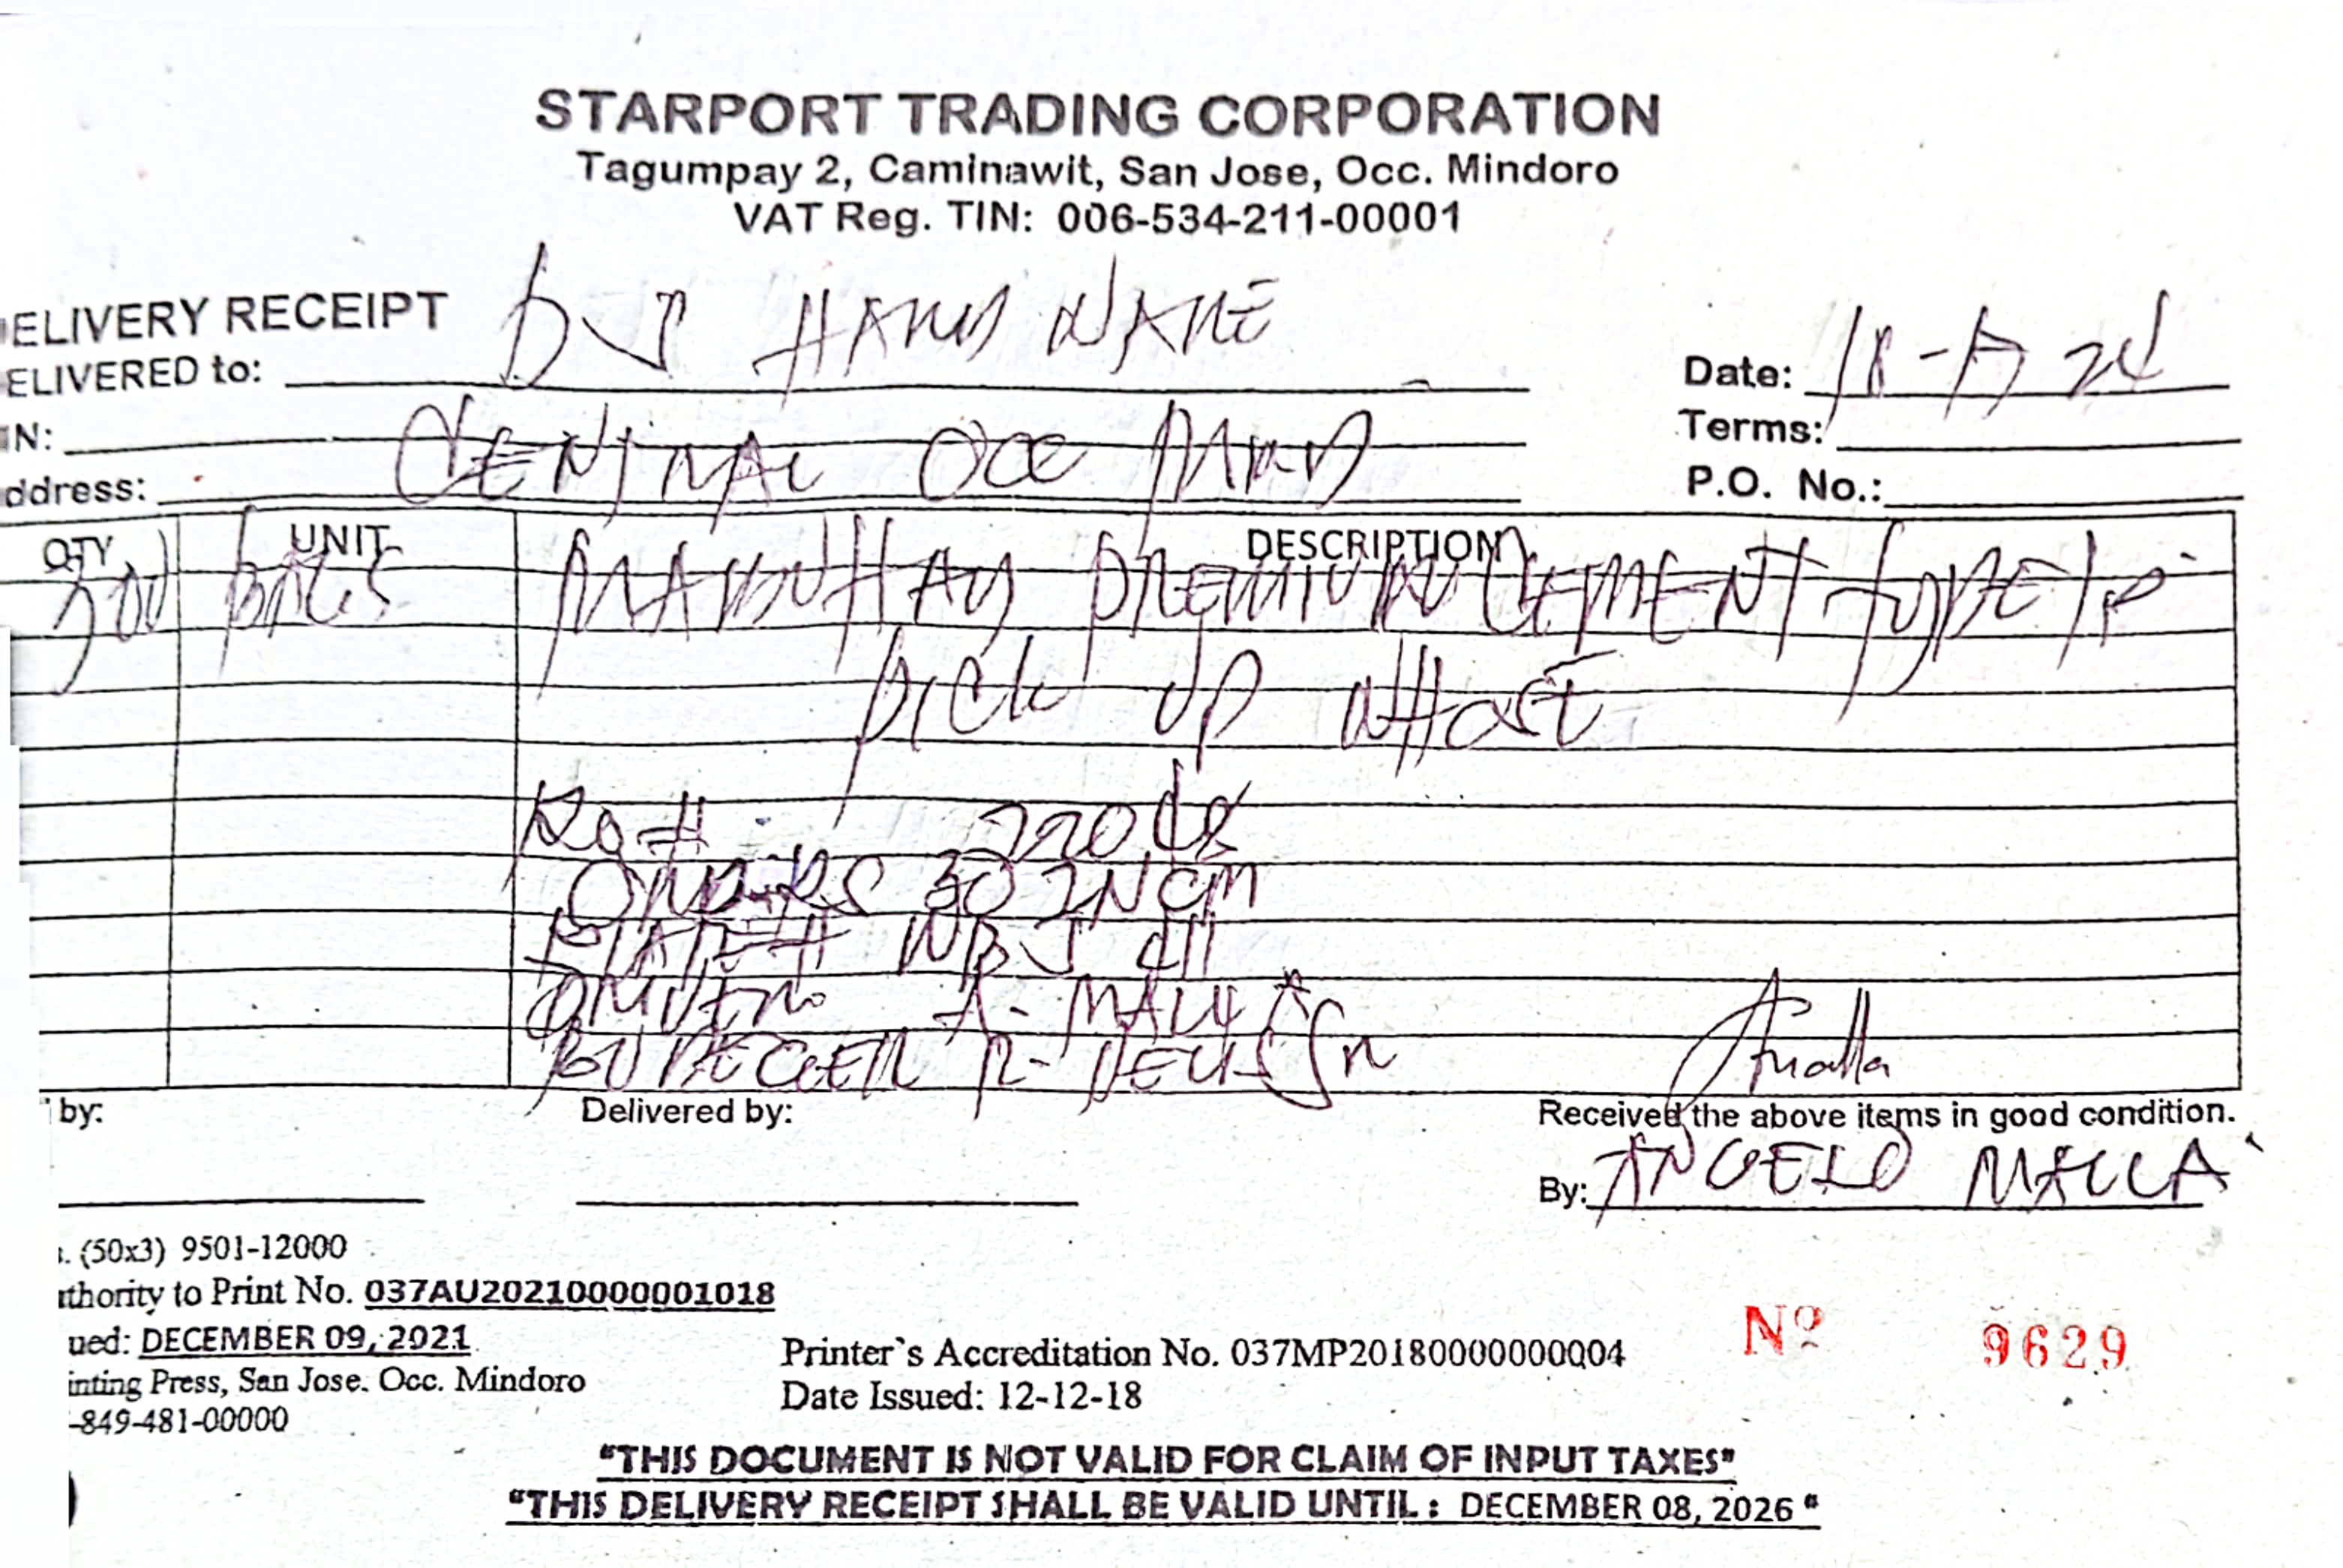 STARPORT TRADING CORPORATION
Tagumpay 2, Caminawit, San Jose, Occ. Mindoro
VAT Reg. TIN: 006-534-211-00001
ELIVERY RECEIPT
ELIVERED to: HARDWARE
Date: 24
IN:
Terms:
ddress: CENTRAL OCC
P.O. No.:
QTY UNIT DESCRIPTION
BAGS MABUHAY PREMIUM CEMENT TYPE 1P
PICK UP WHOSE
22048
PLATE #
DRIVER A. MALLA
R.
by: Delivered by: Received the above items in good condition.
By: ANGELO MALLA
. (50x3) 9501-12000
thority to Print No. 037AU20210000001018
ued: DECEMBER 09, 2021
inting Press, San Jose. Occ. Mindoro
-849-481-00000
Printer's Accreditation No. 037MP20180000000004
Date Issued: 12-12-18
Nº 9629
"THIS DOCUMENT IS NOT VALID FOR CLAIM OF INPUT TAXES"
"THIS DELIVERY RECEIPT SHALL BE VALID UNTIL : DECEMBER 08, 2026 "